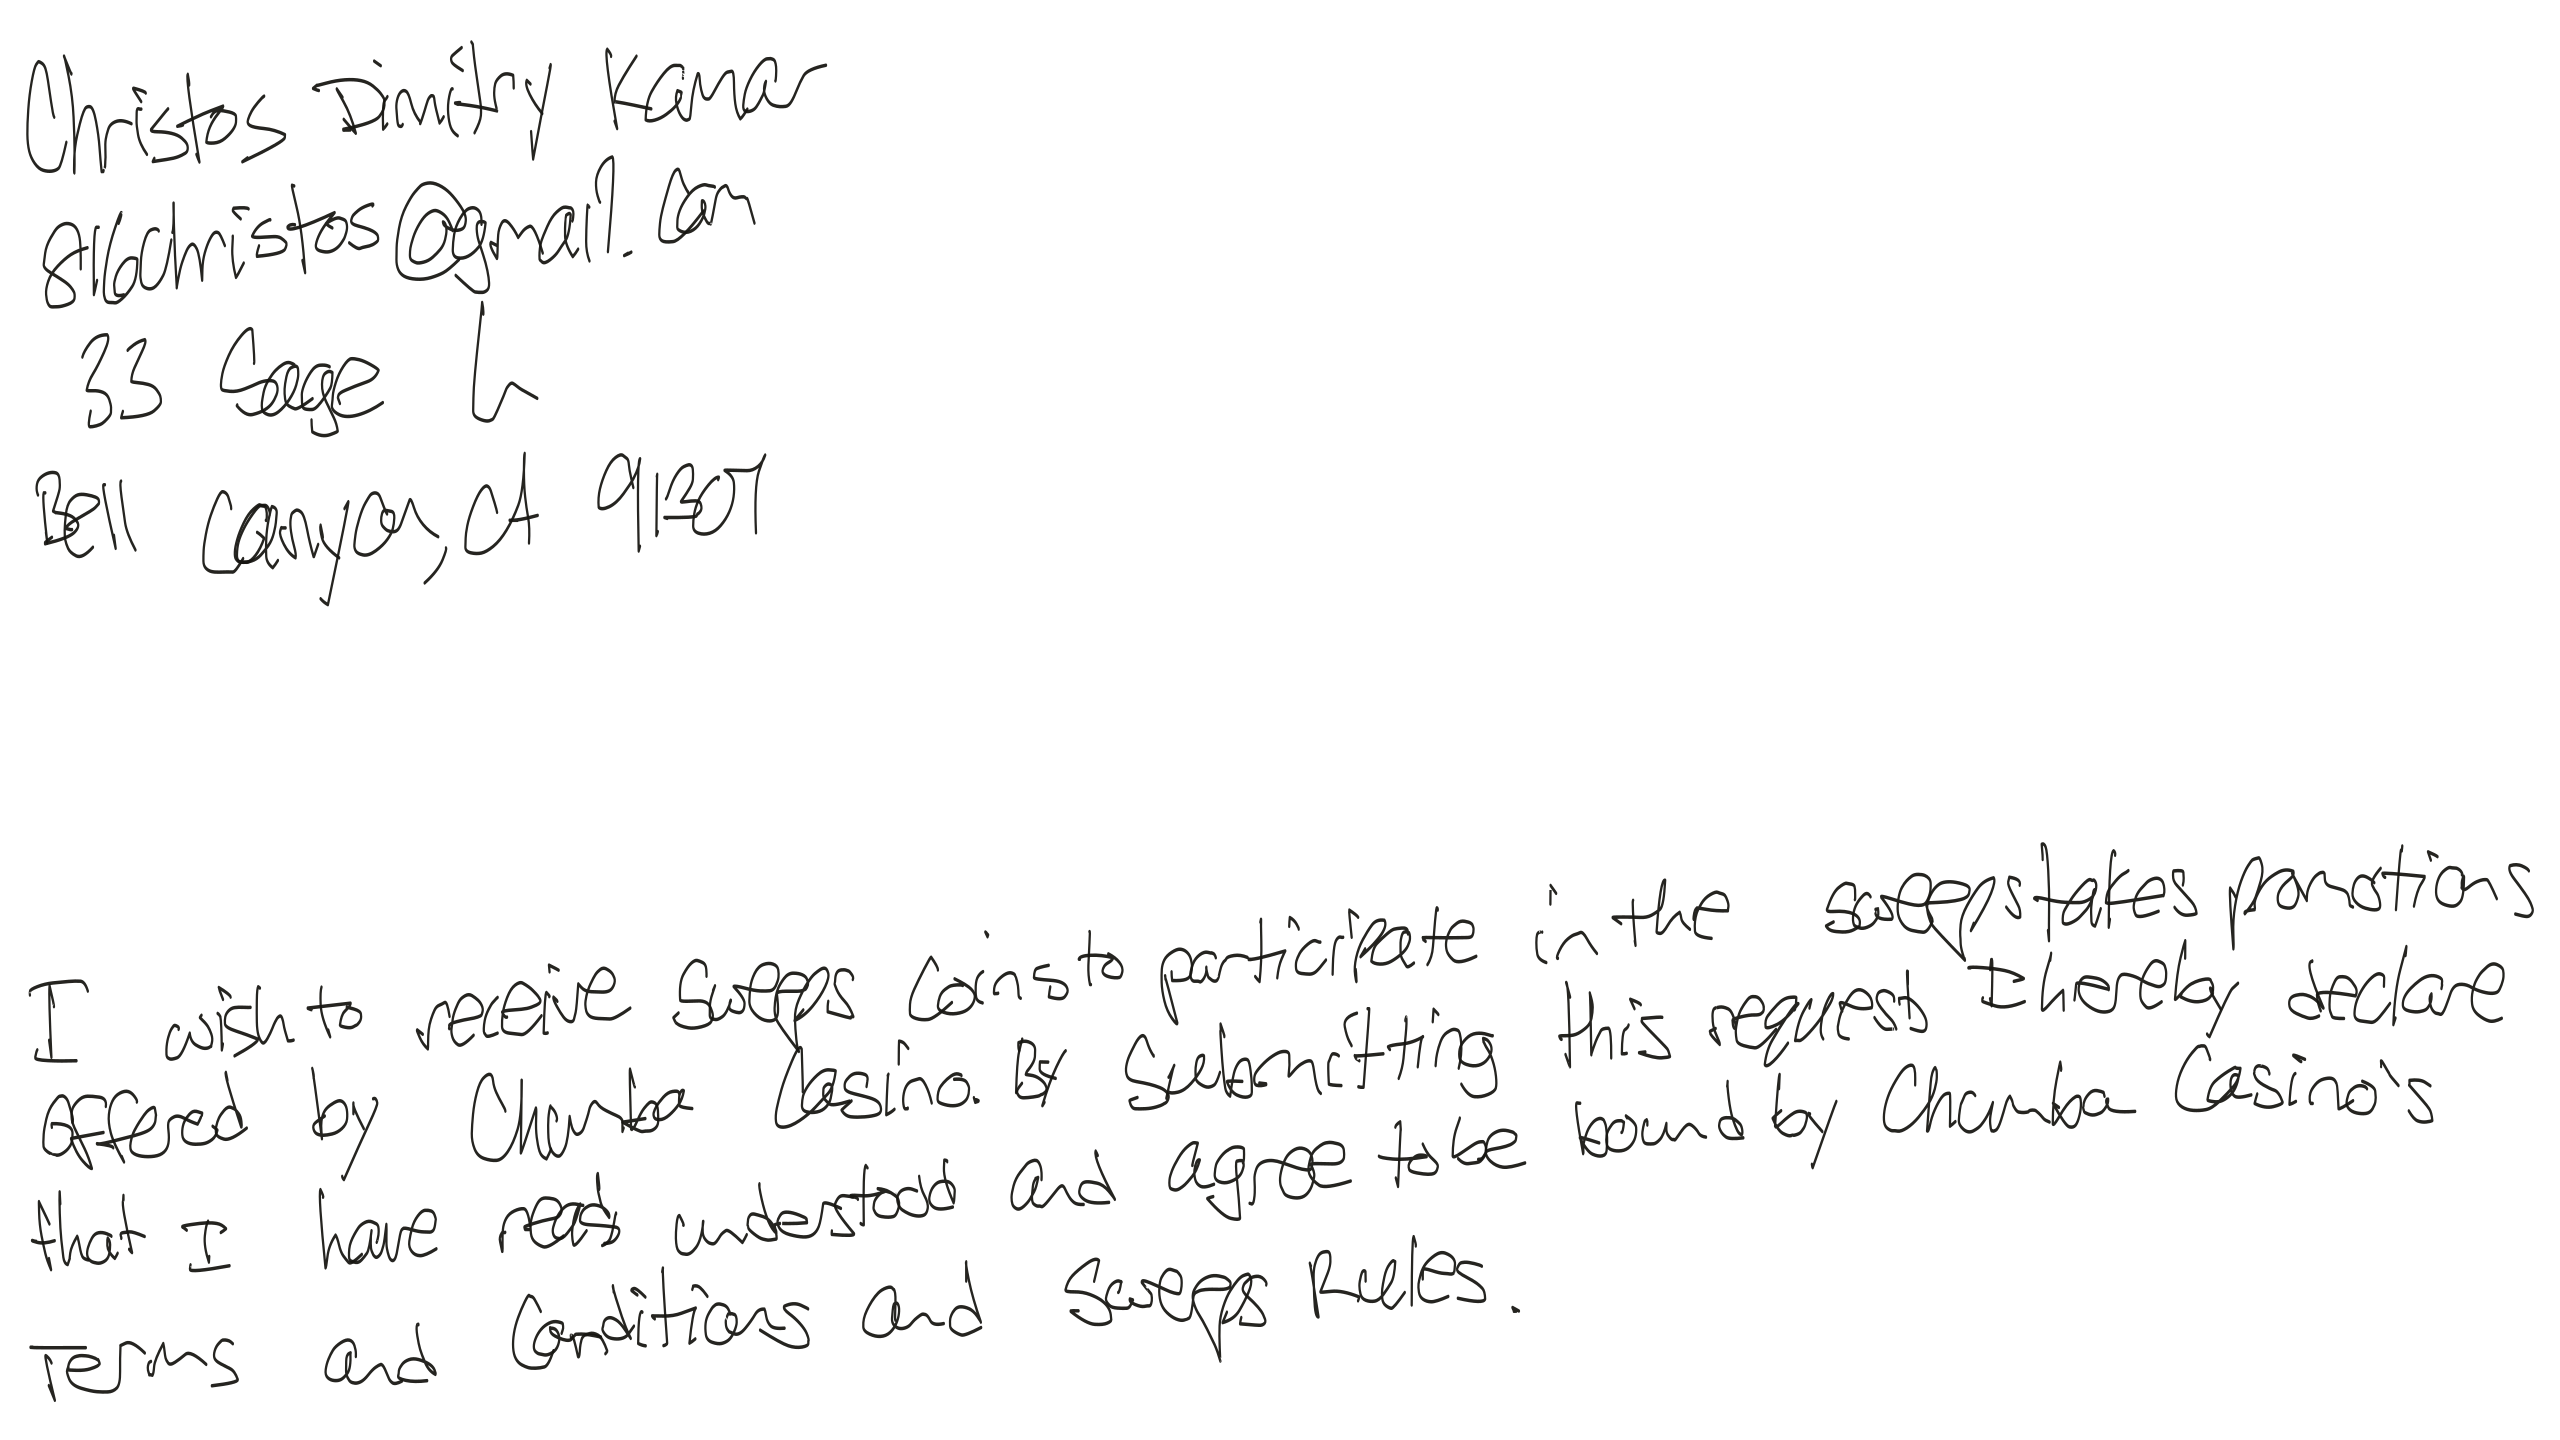 Christos Dimitry Kamar
816christos@gmail.com
33 Sage Ln
Bell Canyon, CA 91307
I wish to receive Sweeps Coins to participate in the sweepstakes promotions
offered by Chumba Casino. By Submitting this request I hereby declare
that I have read understood and agree to be bound by Chumba Casino's
Terms and Conditions and Sweeps Rules.